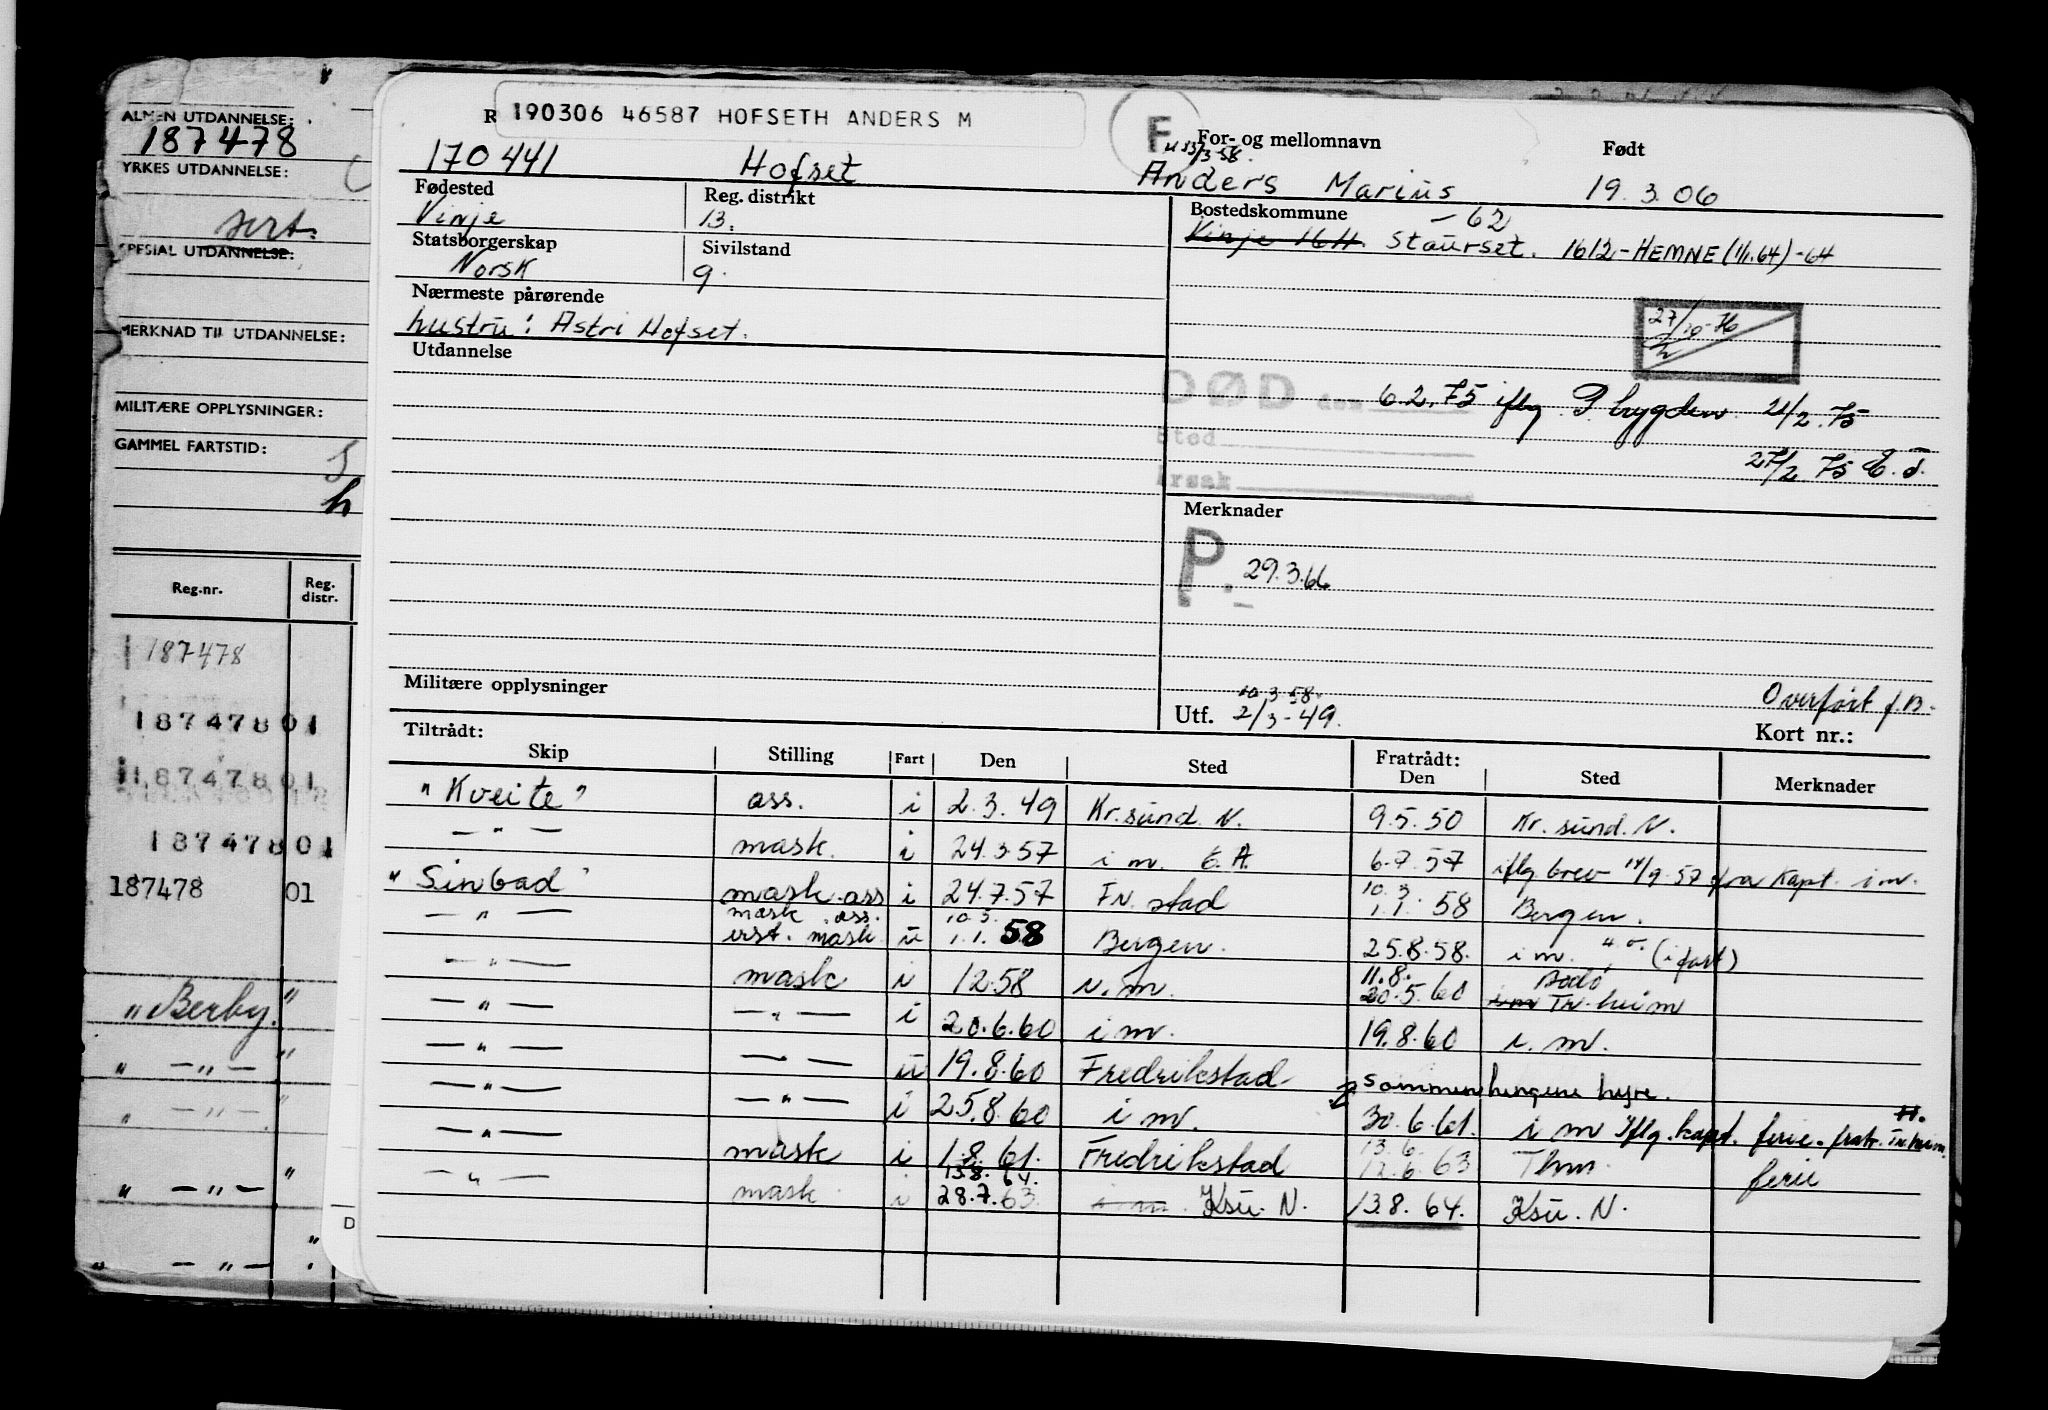 ALMEN UTDANNELSE:
187478
YRKES UTDANNELSE:
sert.
SPESIAL UTDANNELSE:
MERKNAD TIL UTDANNELSE:
MILITÆRE OPPLYSNINGER:
GAMMEL FARTSTID:
h
Reg.nr.
Reg. distr.
187478
187478 01
187478 01
187478 01
187478 01
"Berby"
" — " — "
" — " — "
" — " — "
" — " — "
D
R 190306 46587 HOFSETH ANDERS M
F
For- og mellomnavn
Født
170441 Hofset Anders Marius 19.3.06
Fødested
Vinje
Reg. distrikt
13.
Statsborgerskap
Norsk
Sivilstand
g.
Nærmeste pårørende
hustru: Astri Hofset.
Utdannelse
Bostedskommune
— 62
Vinje 16H. Staurset. 1612-HEMNE (1/1.64) -64
27/10-76
DØD den 6.2.75 iflg. P. bygden 21/2.75
Sted
27/2 75
Årsak
Merknader
P. 29.3.66
Militære opplysninger
10.3.58
Utf. 2/3-49.
Overført f.B.
Kort nr.:
Tiltrådt:
Skip Stilling Fart Den Sted Fratrådt: Den Sted Merknader
"Kveite" ass. i 2.3.49 Kr.sund. N. 9.5.50 Kr. sund. N.
— " — mask. i 24.3.57 i m. 6.7.57 iflg brev 14/9-57 fra Kapt. i m.
"Sinbad" mask.ass i 24.7.57 Fr. stad 10.3. 1.1. 58 Bergen.
— " — mask. ass. erst. mask u 10.3. 1.1. 58 Bergen. 25.8.58. i m. (i fart)
— " — mask i 12.58 11.8. 20.5.60 Bodø im Tr.heim
— " — — " — i 20.6.60 i m. 19.8.60 i. m.
— " — — " — u 19.8.60 Fredrikstad sammenhengene hyre.
— " — — " — i 25.8.60 i m. 30.6.61. i m Iflg. kapt. ferie. fratr. Tr.heim.
— " — mask i 1.8.61. Fredrikstad 13.6. 12.6.63 Thm. ferie
— " — mask i 13.8.64. 28.7.63. Ksu. N. 13.8.64. Ksu. N.